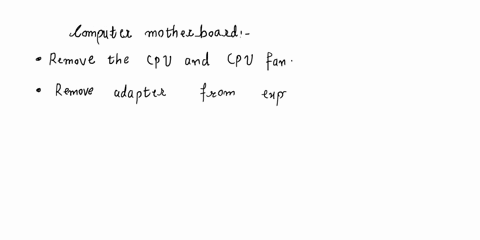 Computer motherboard:-
• Remove the CPU and CPU fan.
• Remove adapter from exp